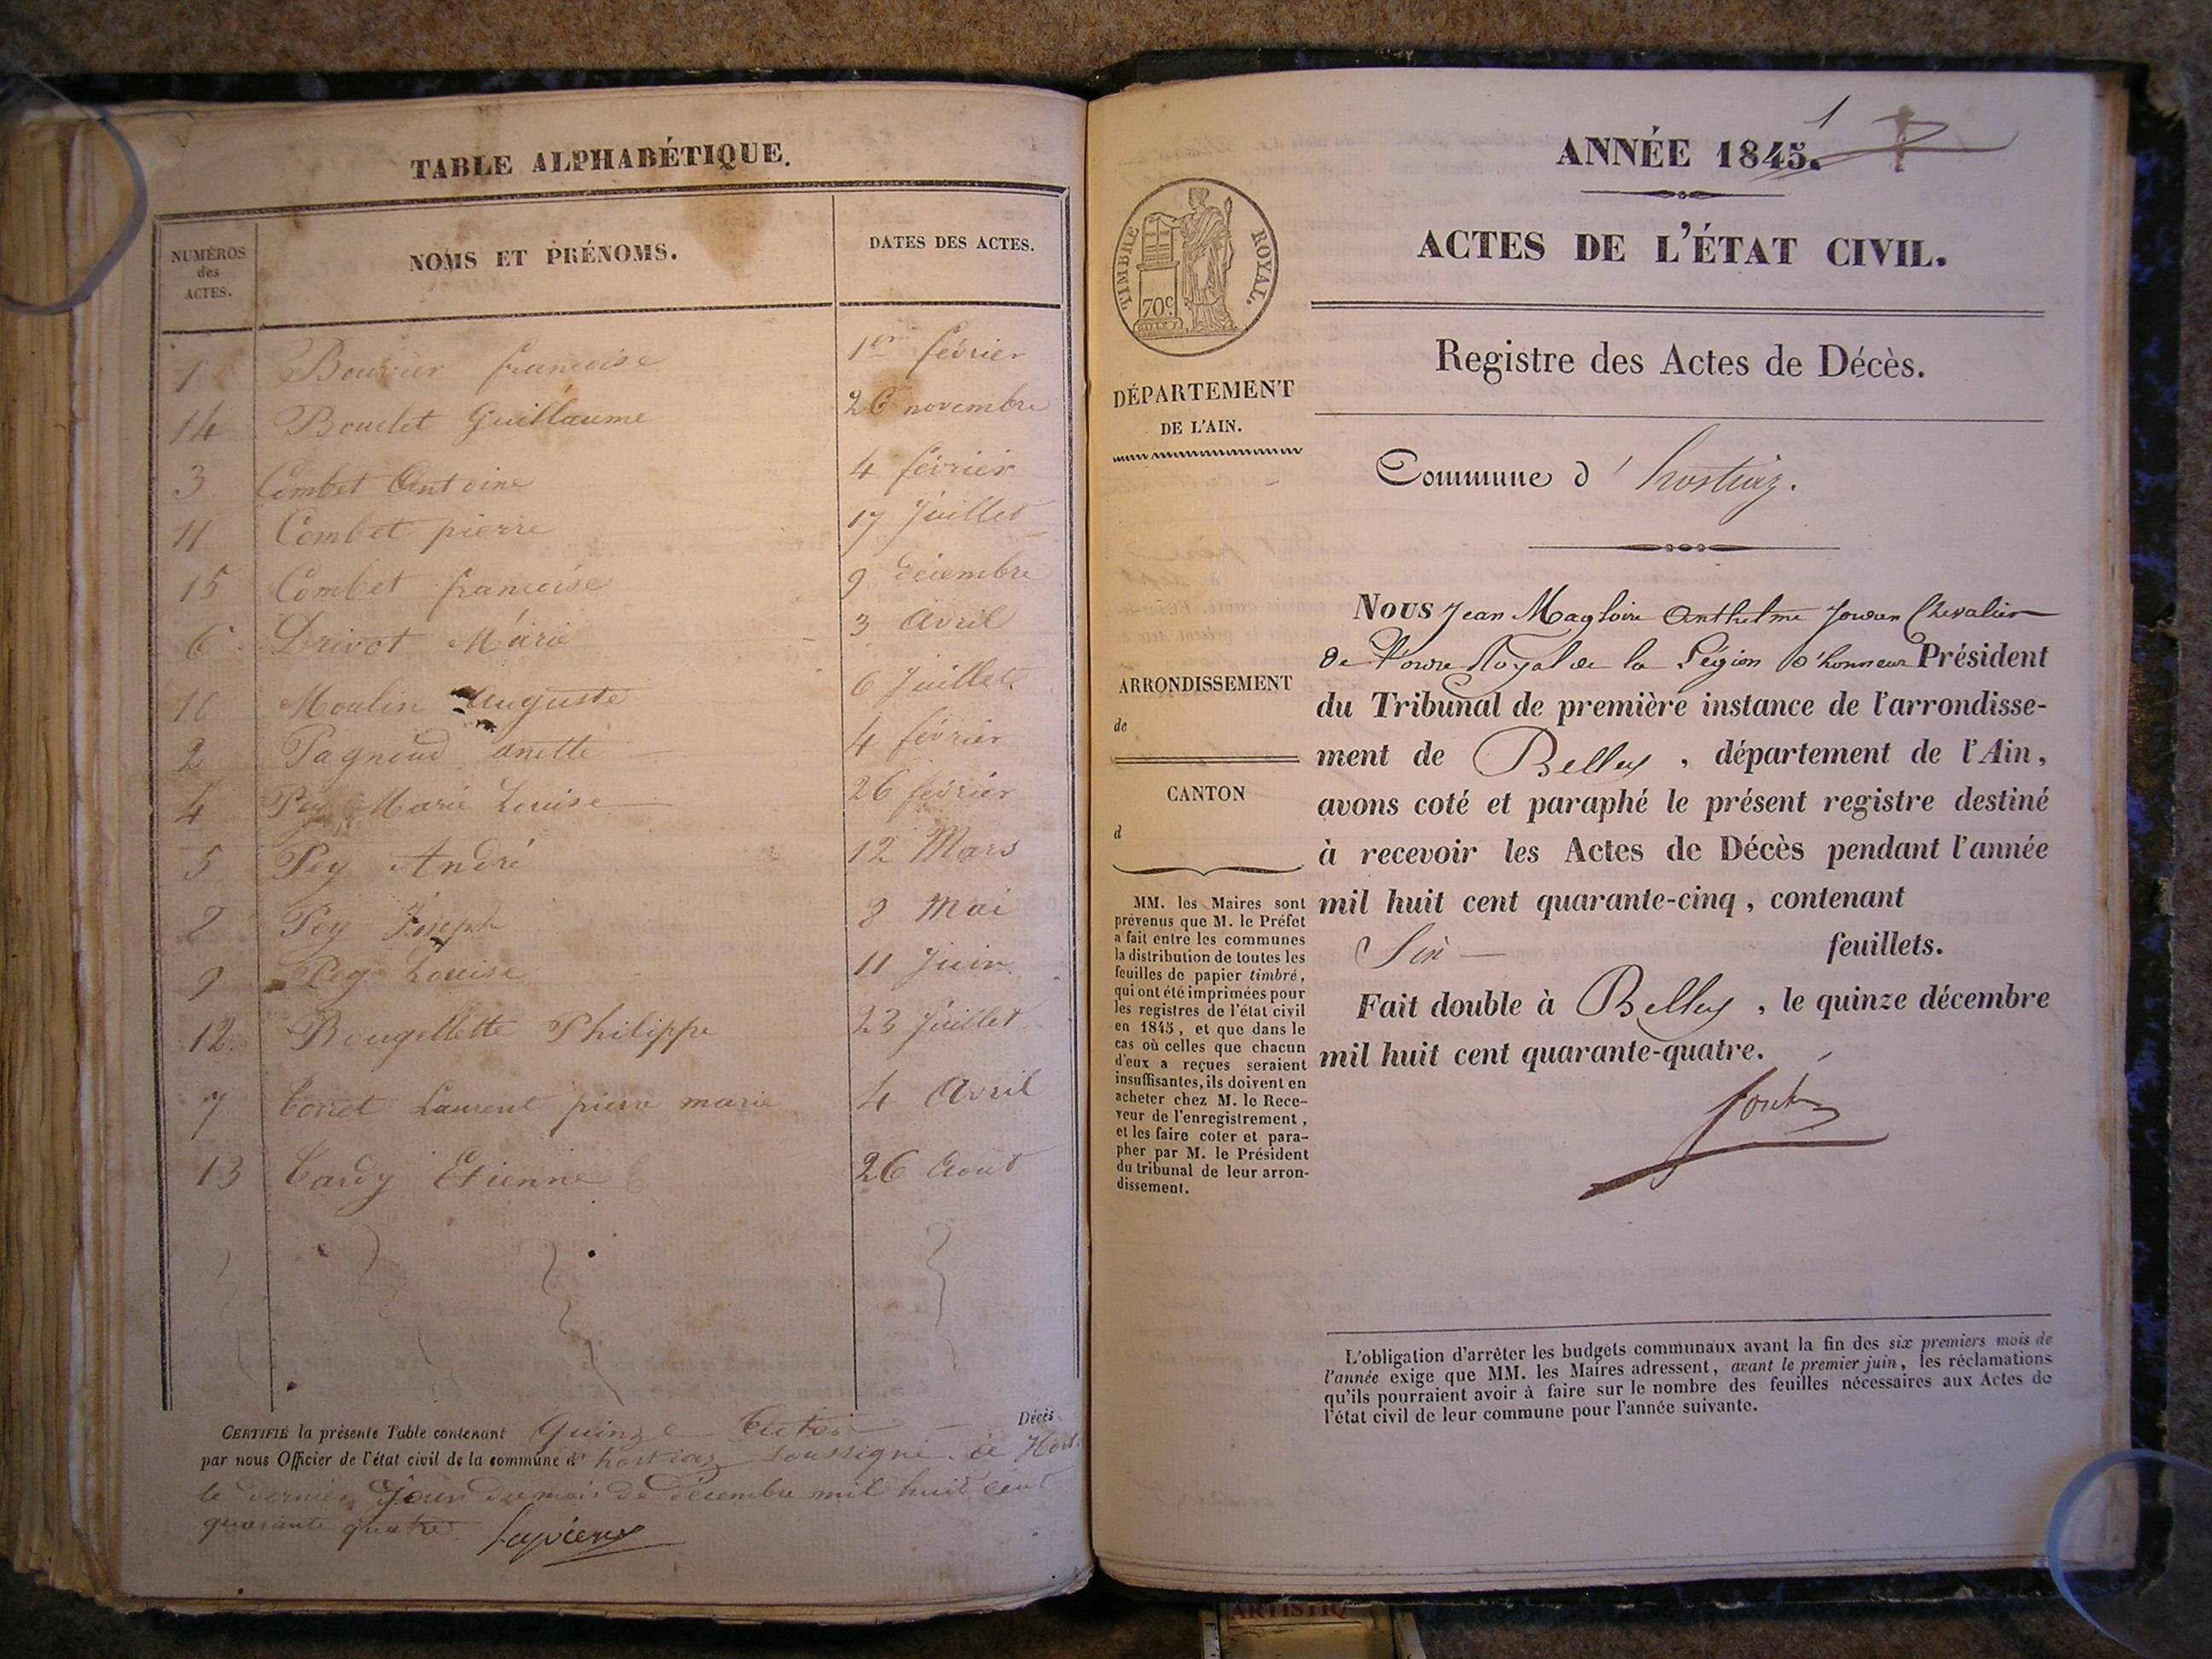 TABLE ALPHABÉTIQUE.
NUMÉROS des ACTES.
NOMS ET PRÉNOMS.
DATES DES ACTES.
1 Bouvier francoise 1er février
14 Boudet Guillaume 26 novembre
3 Combet Antoine 4 février
11 Combet pierre 17 Juillet
15 Combet francoise 9 décembre
6 Drivot Marie 3 Avril
10 Moulin Auguste 6 Juillet
2 Pagnoud anette 4 février
4 Pey Marie Louise 26 février
5 Pey André 12 Mars
8 Pey Joseph 8 Mai
9 Pey Louise 11 Juin
12 Rougellette Philippe 23 Juillet
7 Torret Laurent pierre marie 4 Avril
13 Tardy Etienne 26 Aout
CERTIFIÉ la présente Table contenant Quinze Actes Décès
par nous Officier de l'état civil de la commune d' hostiaz soussigné. à Host
le dernier Jour du mois de décembre mil huit cent
quarante quatre.
1
ANNÉE 1845.
ACTES DE L'ÉTAT CIVIL.
TIMBRE ROYAL.
70c
Registre des Actes de Décès.
DÉPARTEMENT
DE L'AIN.
Commune d' hostiaz.
Nous Jean Magloire Anthelme Jordan Chevalier
de l'ordre Royal de la Légion d'honneur Président
du Tribunal de première instance de l'arrondisse-
ment de Belley, département de l'Ain,
avons coté et paraphé le présent registre destiné
à recevoir les Actes de Décès pendant l'année
mil huit cent quarante-cinq, contenant
Six feuillets.
Fait double à Belley, le quinze décembre
mil huit cent quarante-quatre.
ARRONDISSEMENT
de
CANTON
d
MM. les Maires sont
prévenus que M. le Préfet
a fait entre les communes
la distribution de toutes les
feuilles de papier timbré,
qui ont été imprimées pour
les registres de l'état civil
en 1845, et que dans le
cas où celles que chacun
d'eux a reçues seraient
insuffisantes, ils doivent en
acheter chez M. le Rece-
veur de l'enregistrement,
et les faire coter et para-
pher par M. le Président
du tribunal de leur arron-
dissement.
L'obligation d'arrêter les budgets communaux avant la fin des six premiers mois de
l'année exige que MM. les Maires adressent, avant le premier juin, les réclamations
qu'ils pourraient avoir à faire sur le nombre des feuilles nécessaires aux Actes de
l'état civil de leur commune pour l'année suivante.
ARTISTIQ